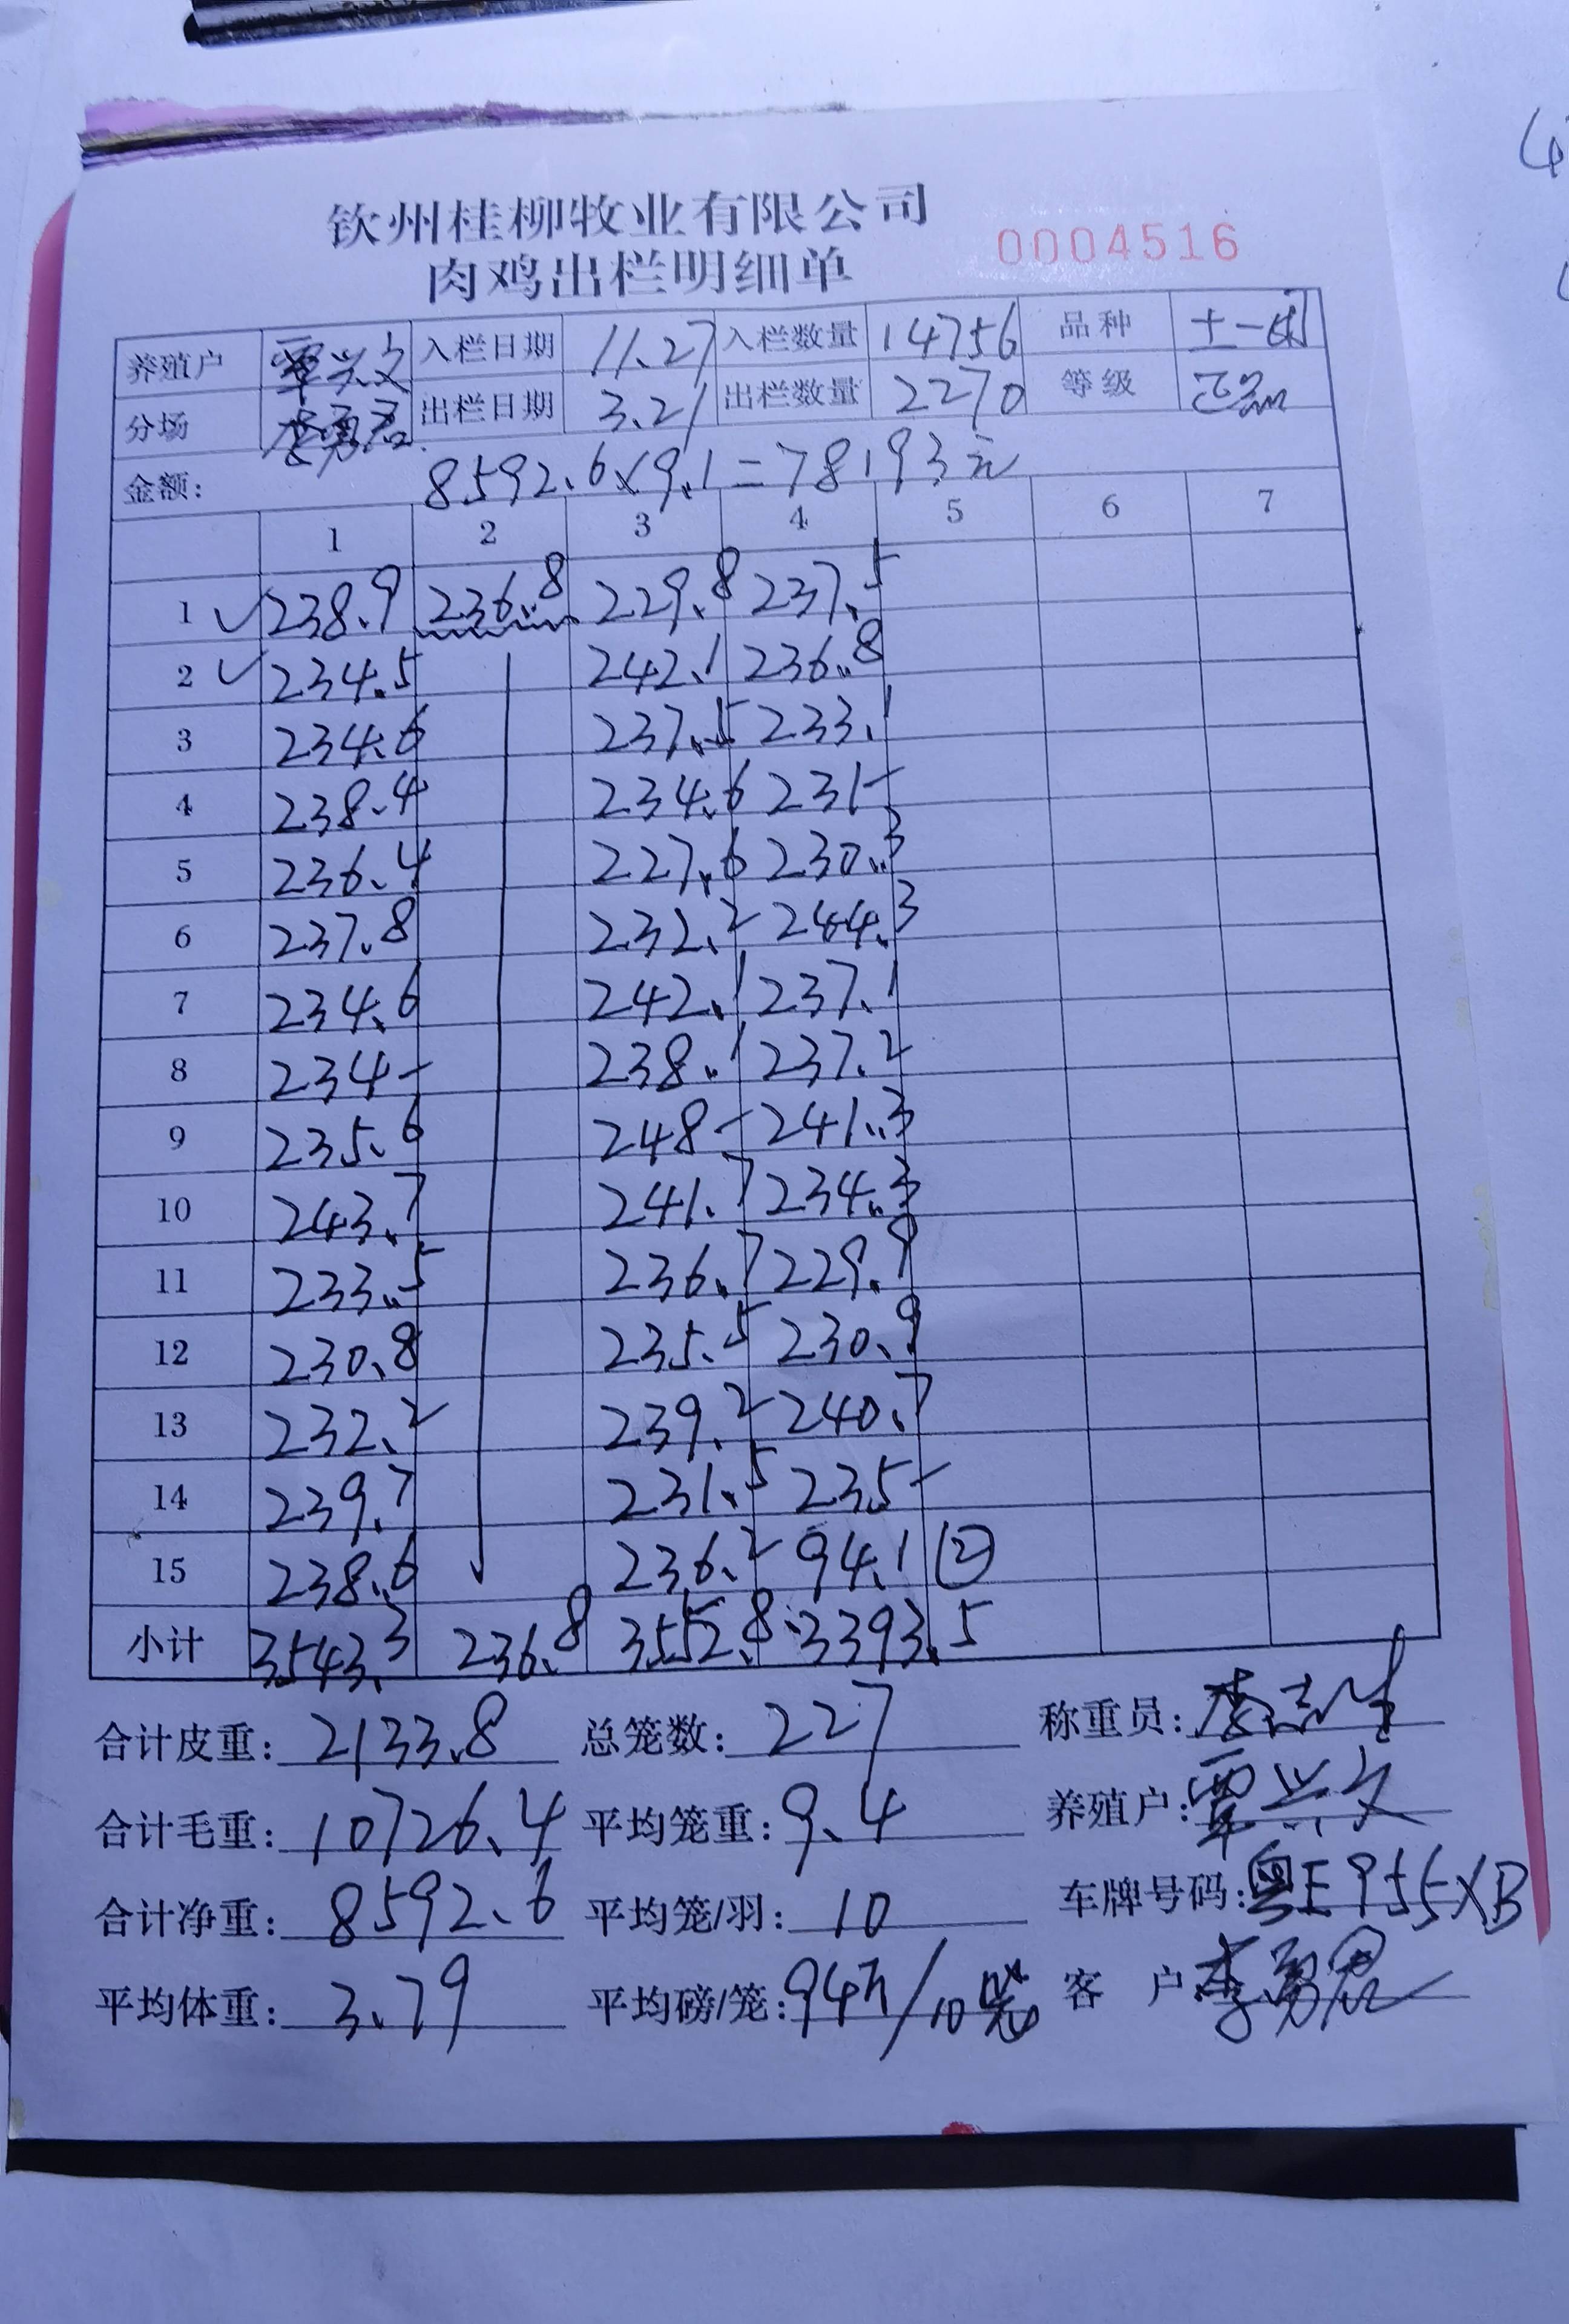 钦州桂柳牧业有限公司
肉鸡出栏明细单 0004516
养殖户 覃兴文 入栏日期 11.27 入栏数量 14756 品种 土一
分场 出栏日期 3.21 出栏数量 2270 等级 正品
金额: 8592.6×9.1=78193元
1 2 3 4 5 6 7
1 ✓ 238.9 236.8 229.8 237.5
2 ✓ 234.5 242.1 236.8
3 234.6 237.5 233.1
4 238.4 234.6 231-
5 236.4 227.6 230.3
6 237.8 232.2 244.3
7 234.6 242.1 237.1
8 234- 238.1 237.2
9 235.6 248- 241.3
10 243.7 241.7 234.3
11 233.5 236.7 229.9
12 230.8 235.5 230.9
13 232.2 239.2 240.7
14 239.7 231.5 235-
15 238.6 236.2 94.1 ⑫
小计 3543.3 236.8 3552.8 3393.5
合计皮重: 2133.8 总笼数: 227 称重员: 李志生
合计毛重: 10726.4 平均笼重: 9.4 养殖户: 覃兴文
合计净重: 8592.6 平均笼/羽: 10 车牌号码: 粤E955XB
平均体重: 3.79 平均磅/笼: 94斤/10笼 客户 李勇君